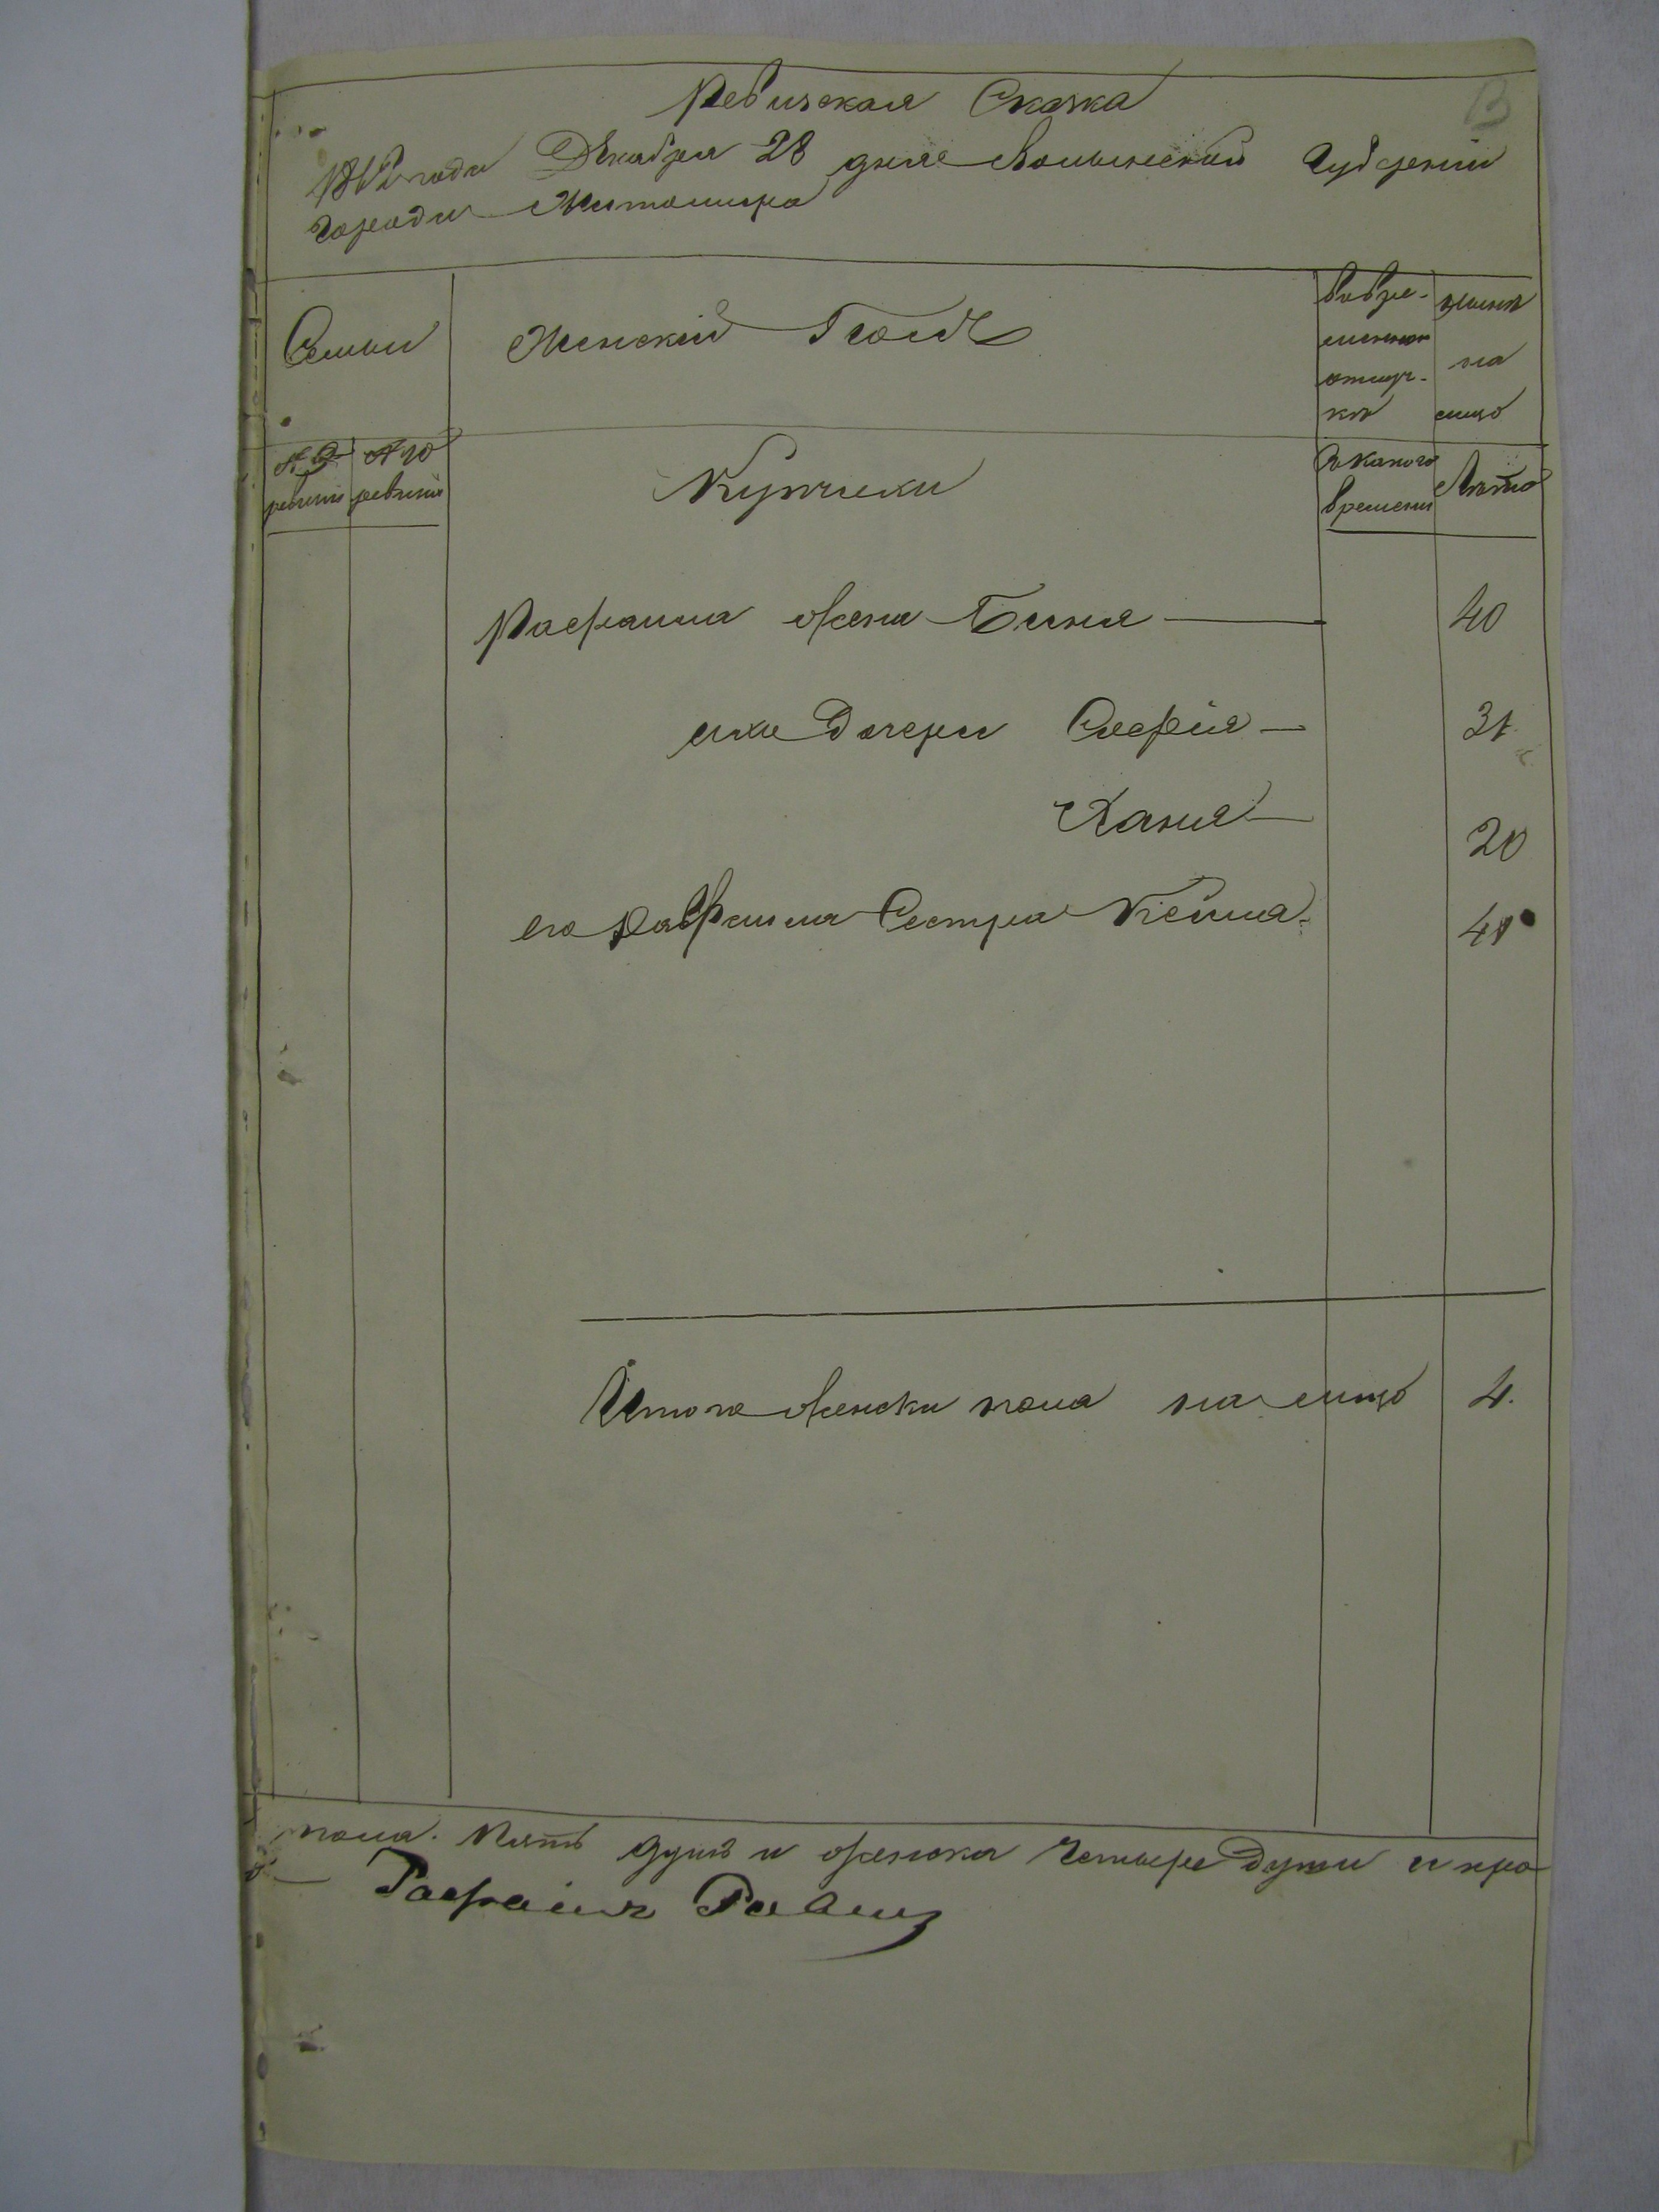 Ревизская Сказка
13
года Декабря 28 дня Волынской Губерніи
города Житомира
Семьи
Женскій Полъ
вовре-
менной
отлуч-
кѣ
нынѣ
на
лицо
№ 9
ревизіи
№ 10
ревизіи
Купчихи
съ какого
времени
Лѣта
Рафаила жена Бина 40
ихъ дочери Софія 21
Ханя 20
его Рафаила Сестра Кейла 41
Итого женска пола на лицо 4.
пола. пять душъ и женска четыре души и кро-
Рафаилъ